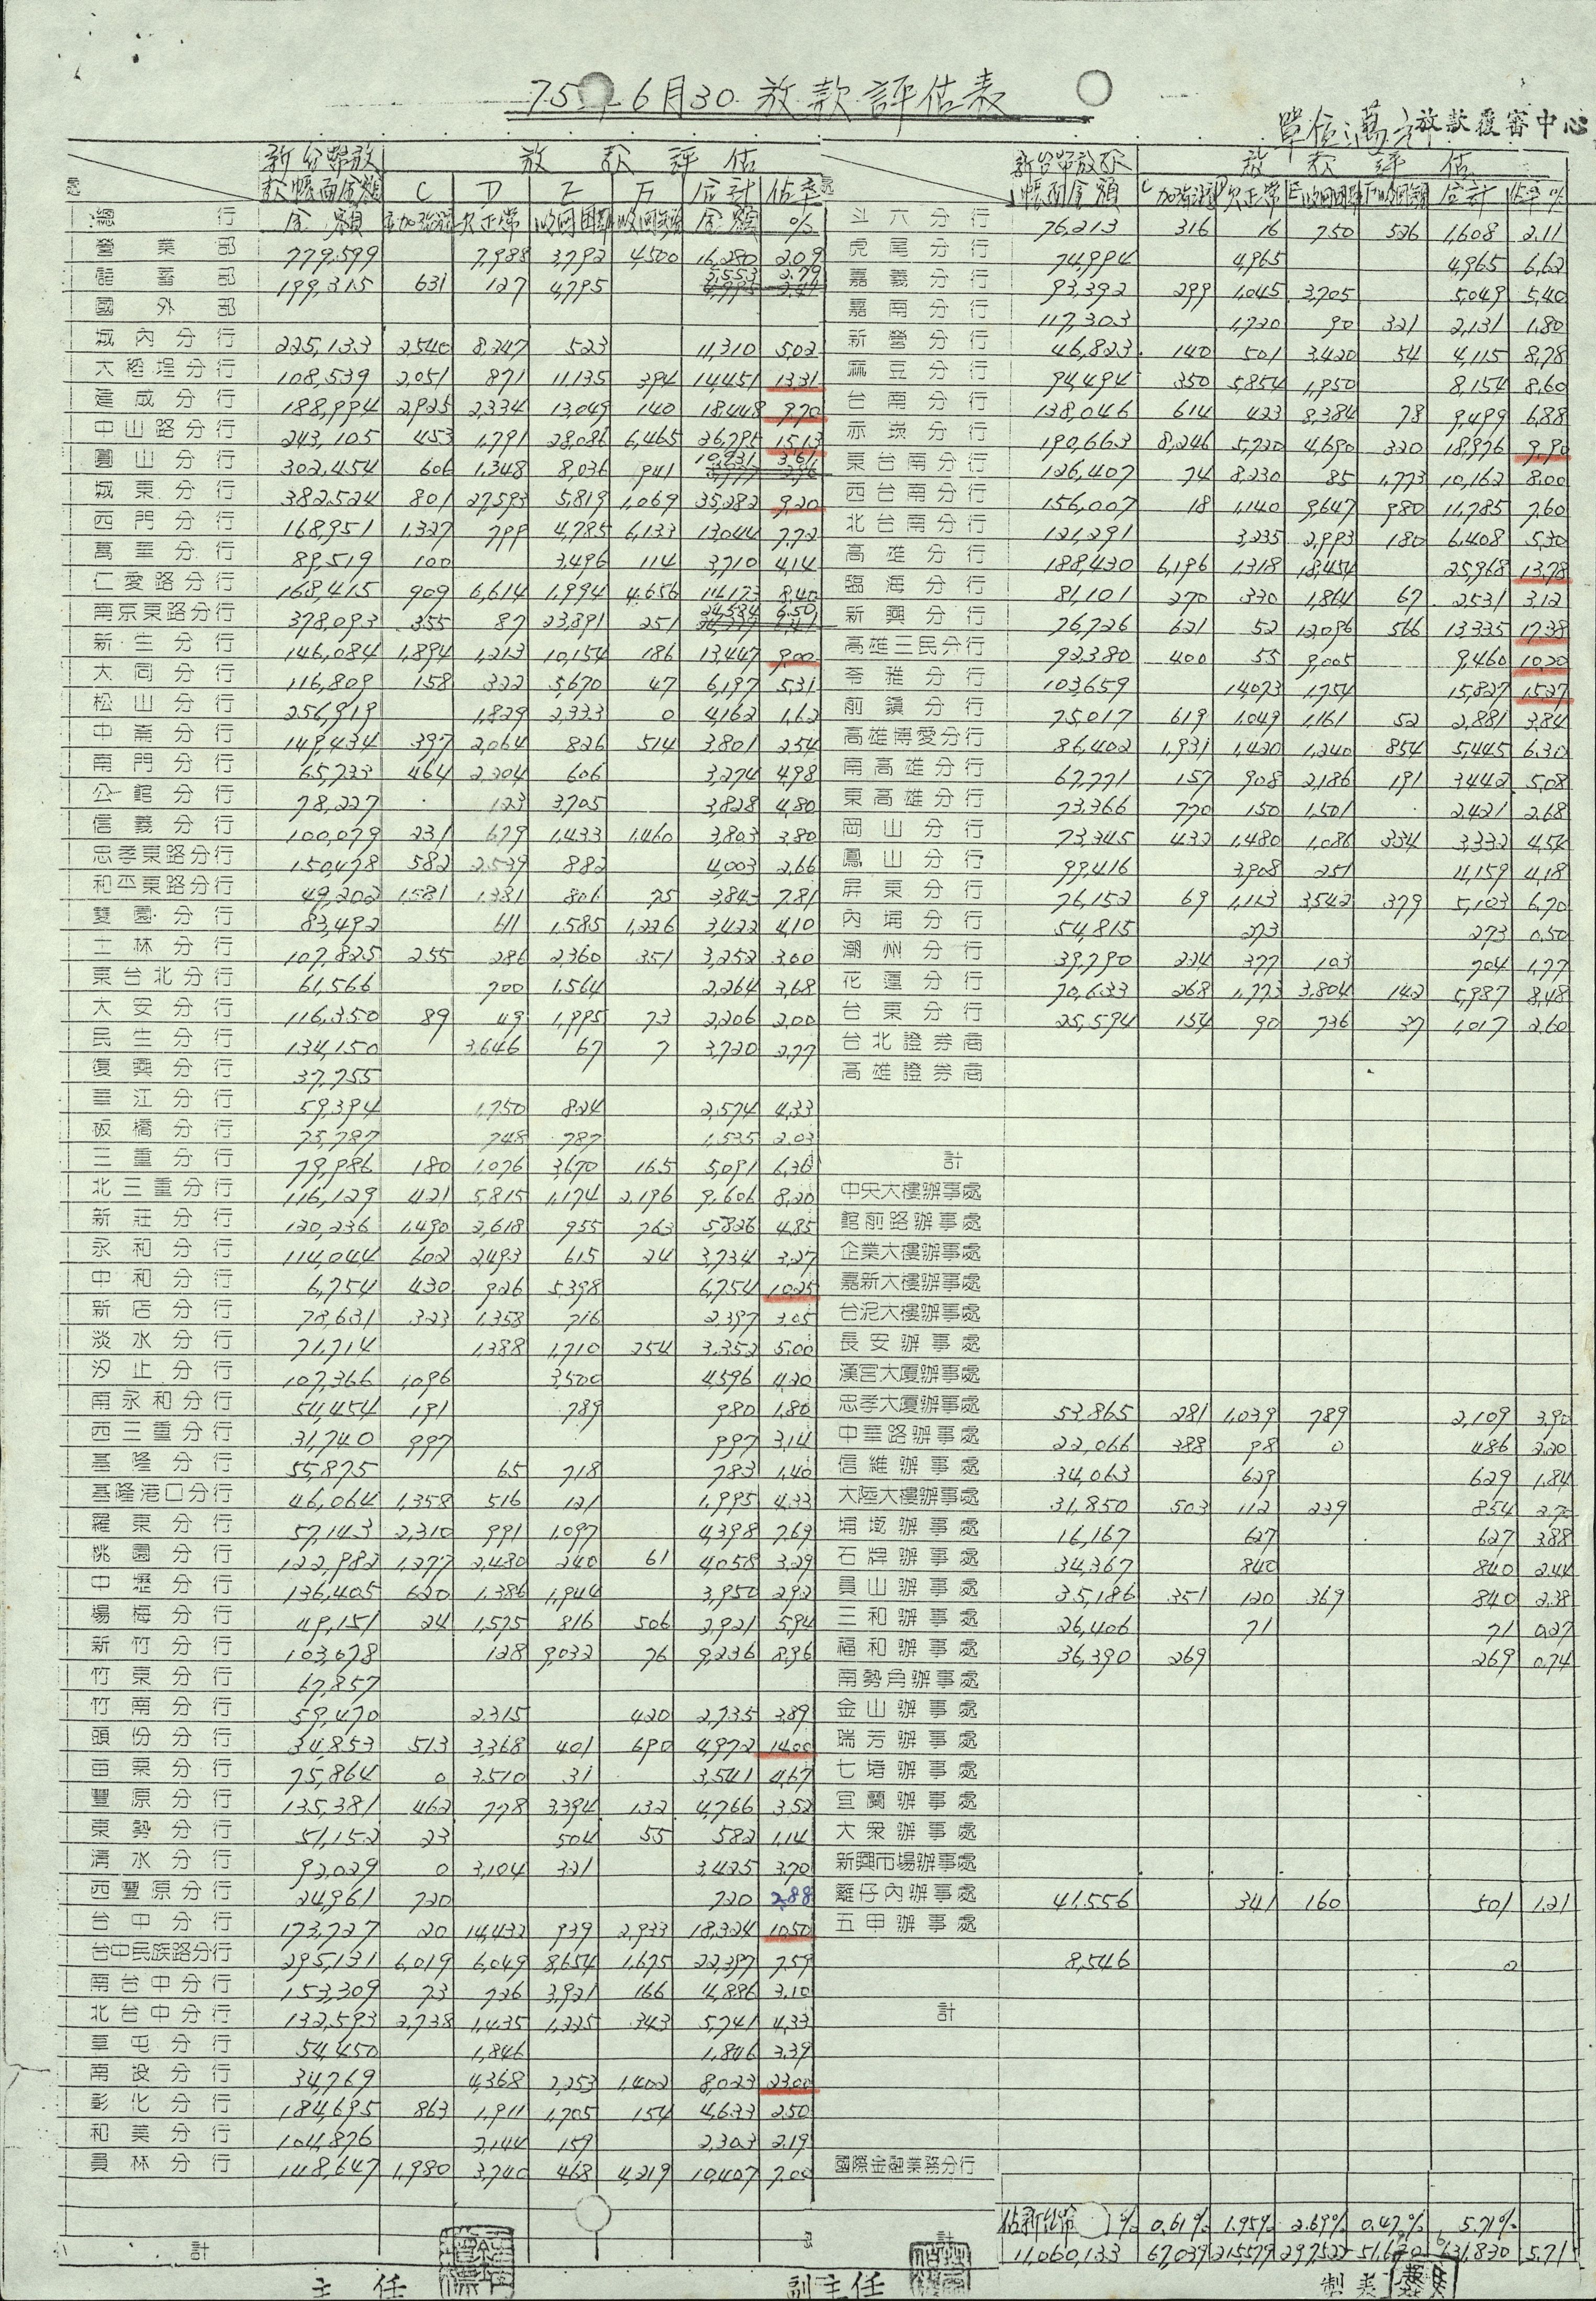 75年6月30 放款評估表
單位:萬元 放款覆審中心
新台幣放款帳面金額 放款評估 新台幣放款帳面金額 放款評估
C D E F 合計 佔率 C加強 D欠正常 E收回困難 F收回無望 合計 佔率%
總行 金額 欠正常 收回困難 金額 % 斗六分行 76,213 316 16 750 526 1,608 2.11
營業部 779,599 7,988 3,792 4,500 16,280 2.09 虎尾分行 74,994 4,965 4,965 6.62
儲蓄部 199,315 631 127 4,795 5,553 2.79 嘉義分行 93,392 299 1,045 3,705 5,049 5.40
國外部 嘉南分行 117,303 1,720 90 321 2,131 1.80
城內分行 225,133 2,540 8,247 523 11,310 5.02 新營分行 46,823 140 501 3,420 54 4,115 8.78
大稻埕分行 108,539 2,051 871 11,135 394 14,451 13.31 麻豆分行 94,494 350 5,854 1,950 8,154 8.60
建成分行 188,994 2,925 2,334 13,049 140 18,448 9.70 台南分行 138,046 614 423 8,384 78 9,499 6.88
中山路分行 243,105 453 1,791 28,086 6,465 36,795 15.13 赤崁分行 190,663 8,246 5,720 4,690 320 18,976 9.90
圓山分行 302,454 606 1,348 8,036 941 10,931 3.61 東台南分行 126,407 74 8,230 85 1,773 10,162 8.00
城東分行 382,524 801 27,593 5,819 1,069 35,282 9.20 西台南分行 156,007 18 1,140 9,647 980 11,785 7.60
西門分行 168,951 1,327 799 4,785 6,133 13,044 7.72 北台南分行 121,291 3,235 2,993 180 6,408 5.30
萬華分行 89,519 100 3,496 114 3,710 4.14 高雄分行 188,430 6,196 1,318 18,454 25,968 13.78
仁愛路分行 168,415 909 6,614 1,994 4,656 14,173 8.40 臨海分行 81,101 270 330 1,864 67 2,531 3.12
南京東路分行 378,093 355 87 23,891 251 24,584 6.50 新興分行 76,726 621 52 12,096 566 13,335 17.38
新生分行 146,084 1,894 1,213 10,154 186 13,447 9.00 高雄三民分行 92,380 400 55 9,005 9,460 10.20
大同分行 116,809 158 322 5,670 47 6,197 5.31 苓雅分行 103,659 14,073 1,754 15,827 15.27
松山分行 256,919 1,829 2,333 0 4,162 1.62 前鎮分行 75,017 619 1,049 1,161 52 2,881 3.84
中崙分行 149,434 397 2,064 826 514 3,801 2.54 高雄博愛分行 86,402 1,931 1,420 1,240 854 5,445 6.30
南門分行 65,733 464 2,204 606 3,274 4.98 南高雄分行 67,771 157 908 2,186 191 3,442 5.08
公館分行 78,227 123 3,705 3,828 4.80 東高雄分行 73,366 770 150 1,501 2,421 2.68
信義分行 100,079 231 679 1,433 1,460 3,803 3.80 岡山分行 73,345 432 1,480 1,086 334 3,332 4.54
忠孝東路分行 150,478 582 2,539 882 4,003 2.66 鳳山分行 99,416 3,908 251 4,159 4.18
和平東路分行 49,202 1,581 1,381 806 75 3,843 7.81 屏東分行 76,152 69 1,113 3,542 379 5,103 6.70
雙園分行 83,492 611 1,585 1,226 3,422 4.10 內埔分行 54,815 273 273 0.50
士林分行 107,825 255 286 2,360 351 3,252 3.00 潮州分行 39,790 224 377 103 704 1.77
東台北分行 61,566 700 1,564 2,264 3.68 花蓮分行 70,633 268 1,773 3,804 142 5,987 8.48
大安分行 116,350 89 49 1,995 73 2,206 2.00 台東分行 25,594 154 90 736 37 1,017 2.60
民生分行 134,150 3,646 67 7 3,720 2.77 台北證券商
復興分行 37,755 高雄證券商
華江分行 59,394 1,750 824 2,574 4.33
板橋分行 75,787 748 787 1,535 2.03
三重分行 79,986 180 1,076 3,670 165 5,091 6.36 計
北三重分行 116,129 421 5,815 1,174 2,196 9,606 8.20 中央大樓辦事處
新莊分行 120,236 1,490 2,618 955 763 5,826 4.85 館前路辦事處
永和分行 114,044 602 2,493 615 24 3,734 3.27 企業大樓辦事處
中和分行 6,754 430 926 5,398 6,754 10.25 嘉新大樓辦事處
新店分行 78,631 323 1,358 716 2,397 3.05 台泥大樓辦事處
淡水分行 71,714 1,388 1,710 254 3,352 5.00 長安辦事處
汐止分行 107,366 1,096 3,500 4,596 4.20 漢宮大廈辦事處
南永和分行 54,454 191 789 980 1.80 忠孝大廈辦事處 53,865 281 1,039 789 2,109 3.90
西三重分行 31,740 997 997 3.14 中華路辦事處 22,066 388 98 0 486 2.20
基隆分行 55,875 65 718 783 1.40 信維辦事處 34,063 629 629 1.84
基隆港口分行 46,064 1,358 516 121 1,995 4.33 大陸大樓辦事處 31,850 503 112 239 854 2.70
羅東分行 57,143 2,310 991 1,097 4,398 7.69 埔墘辦事處 16,167 627 627 3.88
桃園分行 122,982 1,277 2,480 240 61 4,058 3.29 石牌辦事處 34,367 840 840 2.44
中壢分行 136,405 620 1,386 1,944 3,950 2.92 員山辦事處 35,186 351 120 369 840 2.38
楊梅分行 49,151 24 1,575 816 506 2,921 5.94 三和辦事處 26,406 71 71 0.27
新竹分行 103,078 128 9,032 76 9,236 8.96 福和辦事處 36,390 269 269 0.74
竹東分行 67,857 南勢角辦事處
竹南分行 59,470 2,315 420 2,735 3.89 金山辦事處
頭份分行 34,853 513 3,368 401 690 4,972 14.00 瑞芳辦事處
苗栗分行 75,864 0 3,510 31 3,541 4.67 七堵辦事處
豐原分行 135,381 462 778 3,394 132 4,766 3.52 宜蘭辦事處
東勢分行 51,152 23 504 55 582 1.14 大眾辦事處
清水分行 92,029 0 3,104 321 3,425 3.70 新興市場辦事處
西豐原分行 24,961 720 720 2.88 籬仔內辦事處 41,556 341 160 501 1.21
台中分行 173,727 20 14,432 939 2,933 18,324 10.50 五甲辦事處
台中民族路分行 295,131 6,019 6,049 8,654 1,675 22,397 7.59 8,546 0
南台中分行 153,309 73 726 3,921 166 4,886 3.10
北台中分行 132,593 2,738 1,435 1,225 343 5,741 4.33 計
草屯分行 54,450 1,846 1,846 3.39
南投分行 34,769 4,368 2,253 1,402 8,023 23.00
彰化分行 184,695 863 1,911 1,705 154 4,633 2.50
和美分行 104,876 2,144 159 2,303 2.19
員林分行 148,647 1,980 3,740 468 4,219 10,407 7.00 國際金融業務分行
佔新台幣 % 0.61% 1.95% 2.69% 0.47% 5.71%
計 計 11,060,133 67,039 215,579 297,522 51,690 631,830 5.71
主任 副主任 製表